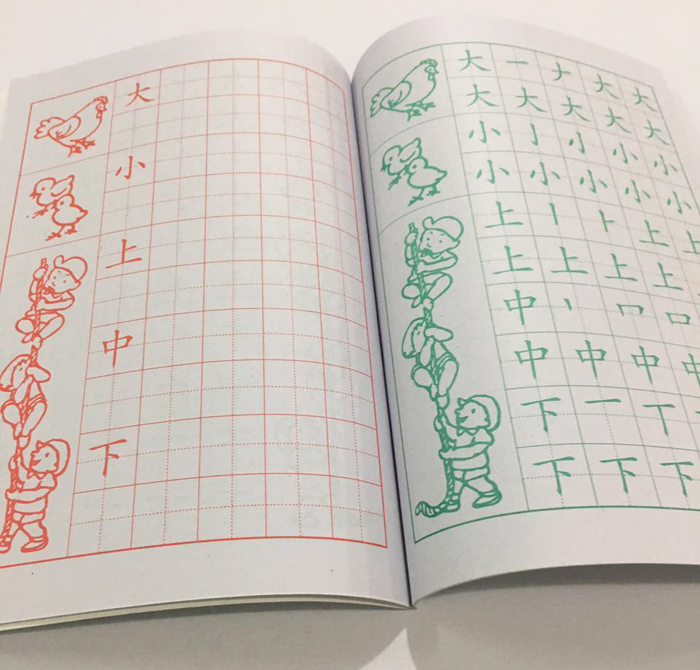 大
小
上
中
下
大 一 ナ 大 大
大 大 大 大 大
小 亅 小 小
小 小 小 小 小
上 丨 ⺊ 上 上
上 上 上 上
中 丨 冂 口
中 中 中 中
下 一 丅
下 下 下